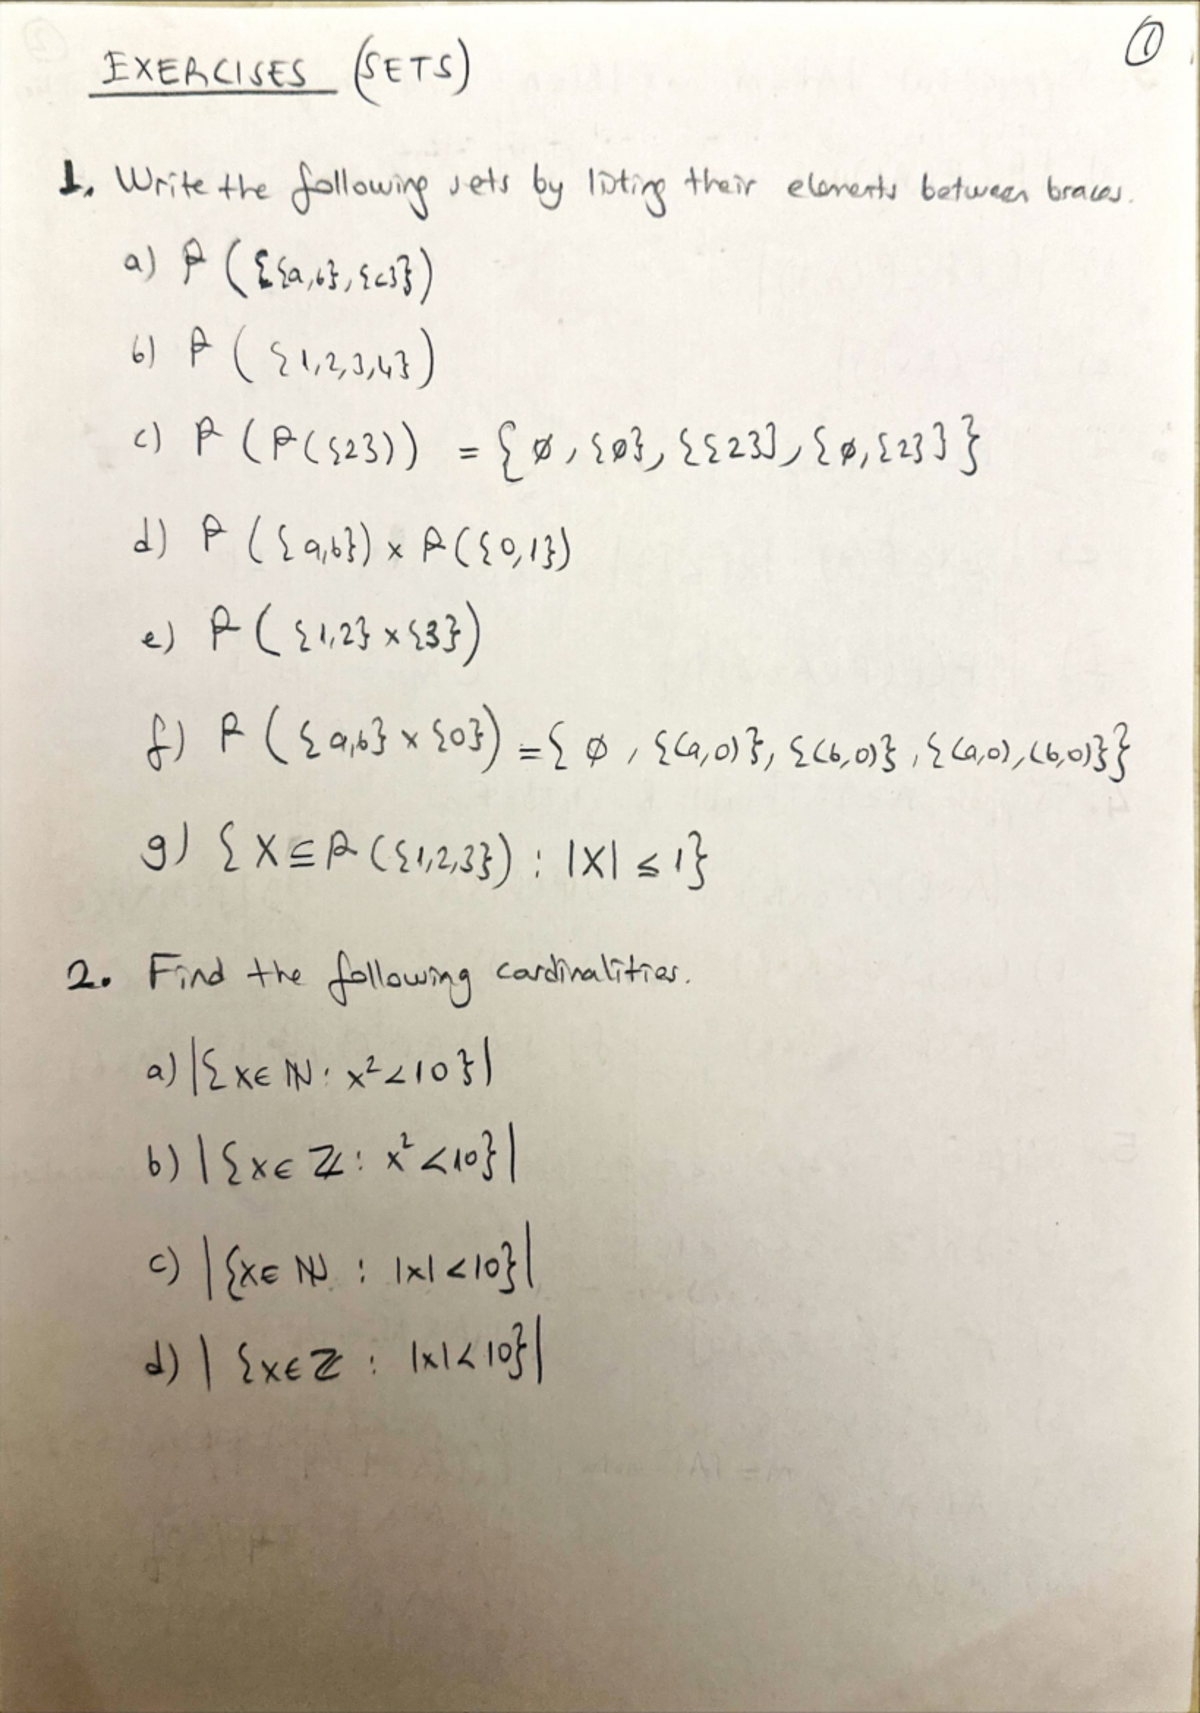 ①
EXERCISES (SETS)
1. Write the following sets by listing their elements between braces.
a) P({{a,b},{c}})
b) P({1,2,3,4})
c) P(P({2})) = {∅, {∅}, {{2}}, {∅,{2}}}
d) P({a,b}) × P({0,1})
e) P({1,2} × {3})
f) P({a,b} × {0}) = {∅, {(a,0)}, {(b,0)}, {(a,0),(b,0)}}
g) {X ⊆ P({1,2,3}) : |X| ≤ 1}
2. Find the following cardinalities.
a) |{x ∈ ℕ : x² < 10}|
b) |{x ∈ ℤ : x² < 10}|
c) |{x ∈ ℕ : |x| < 10}|
d) |{x ∈ ℤ : |x| < 10}|